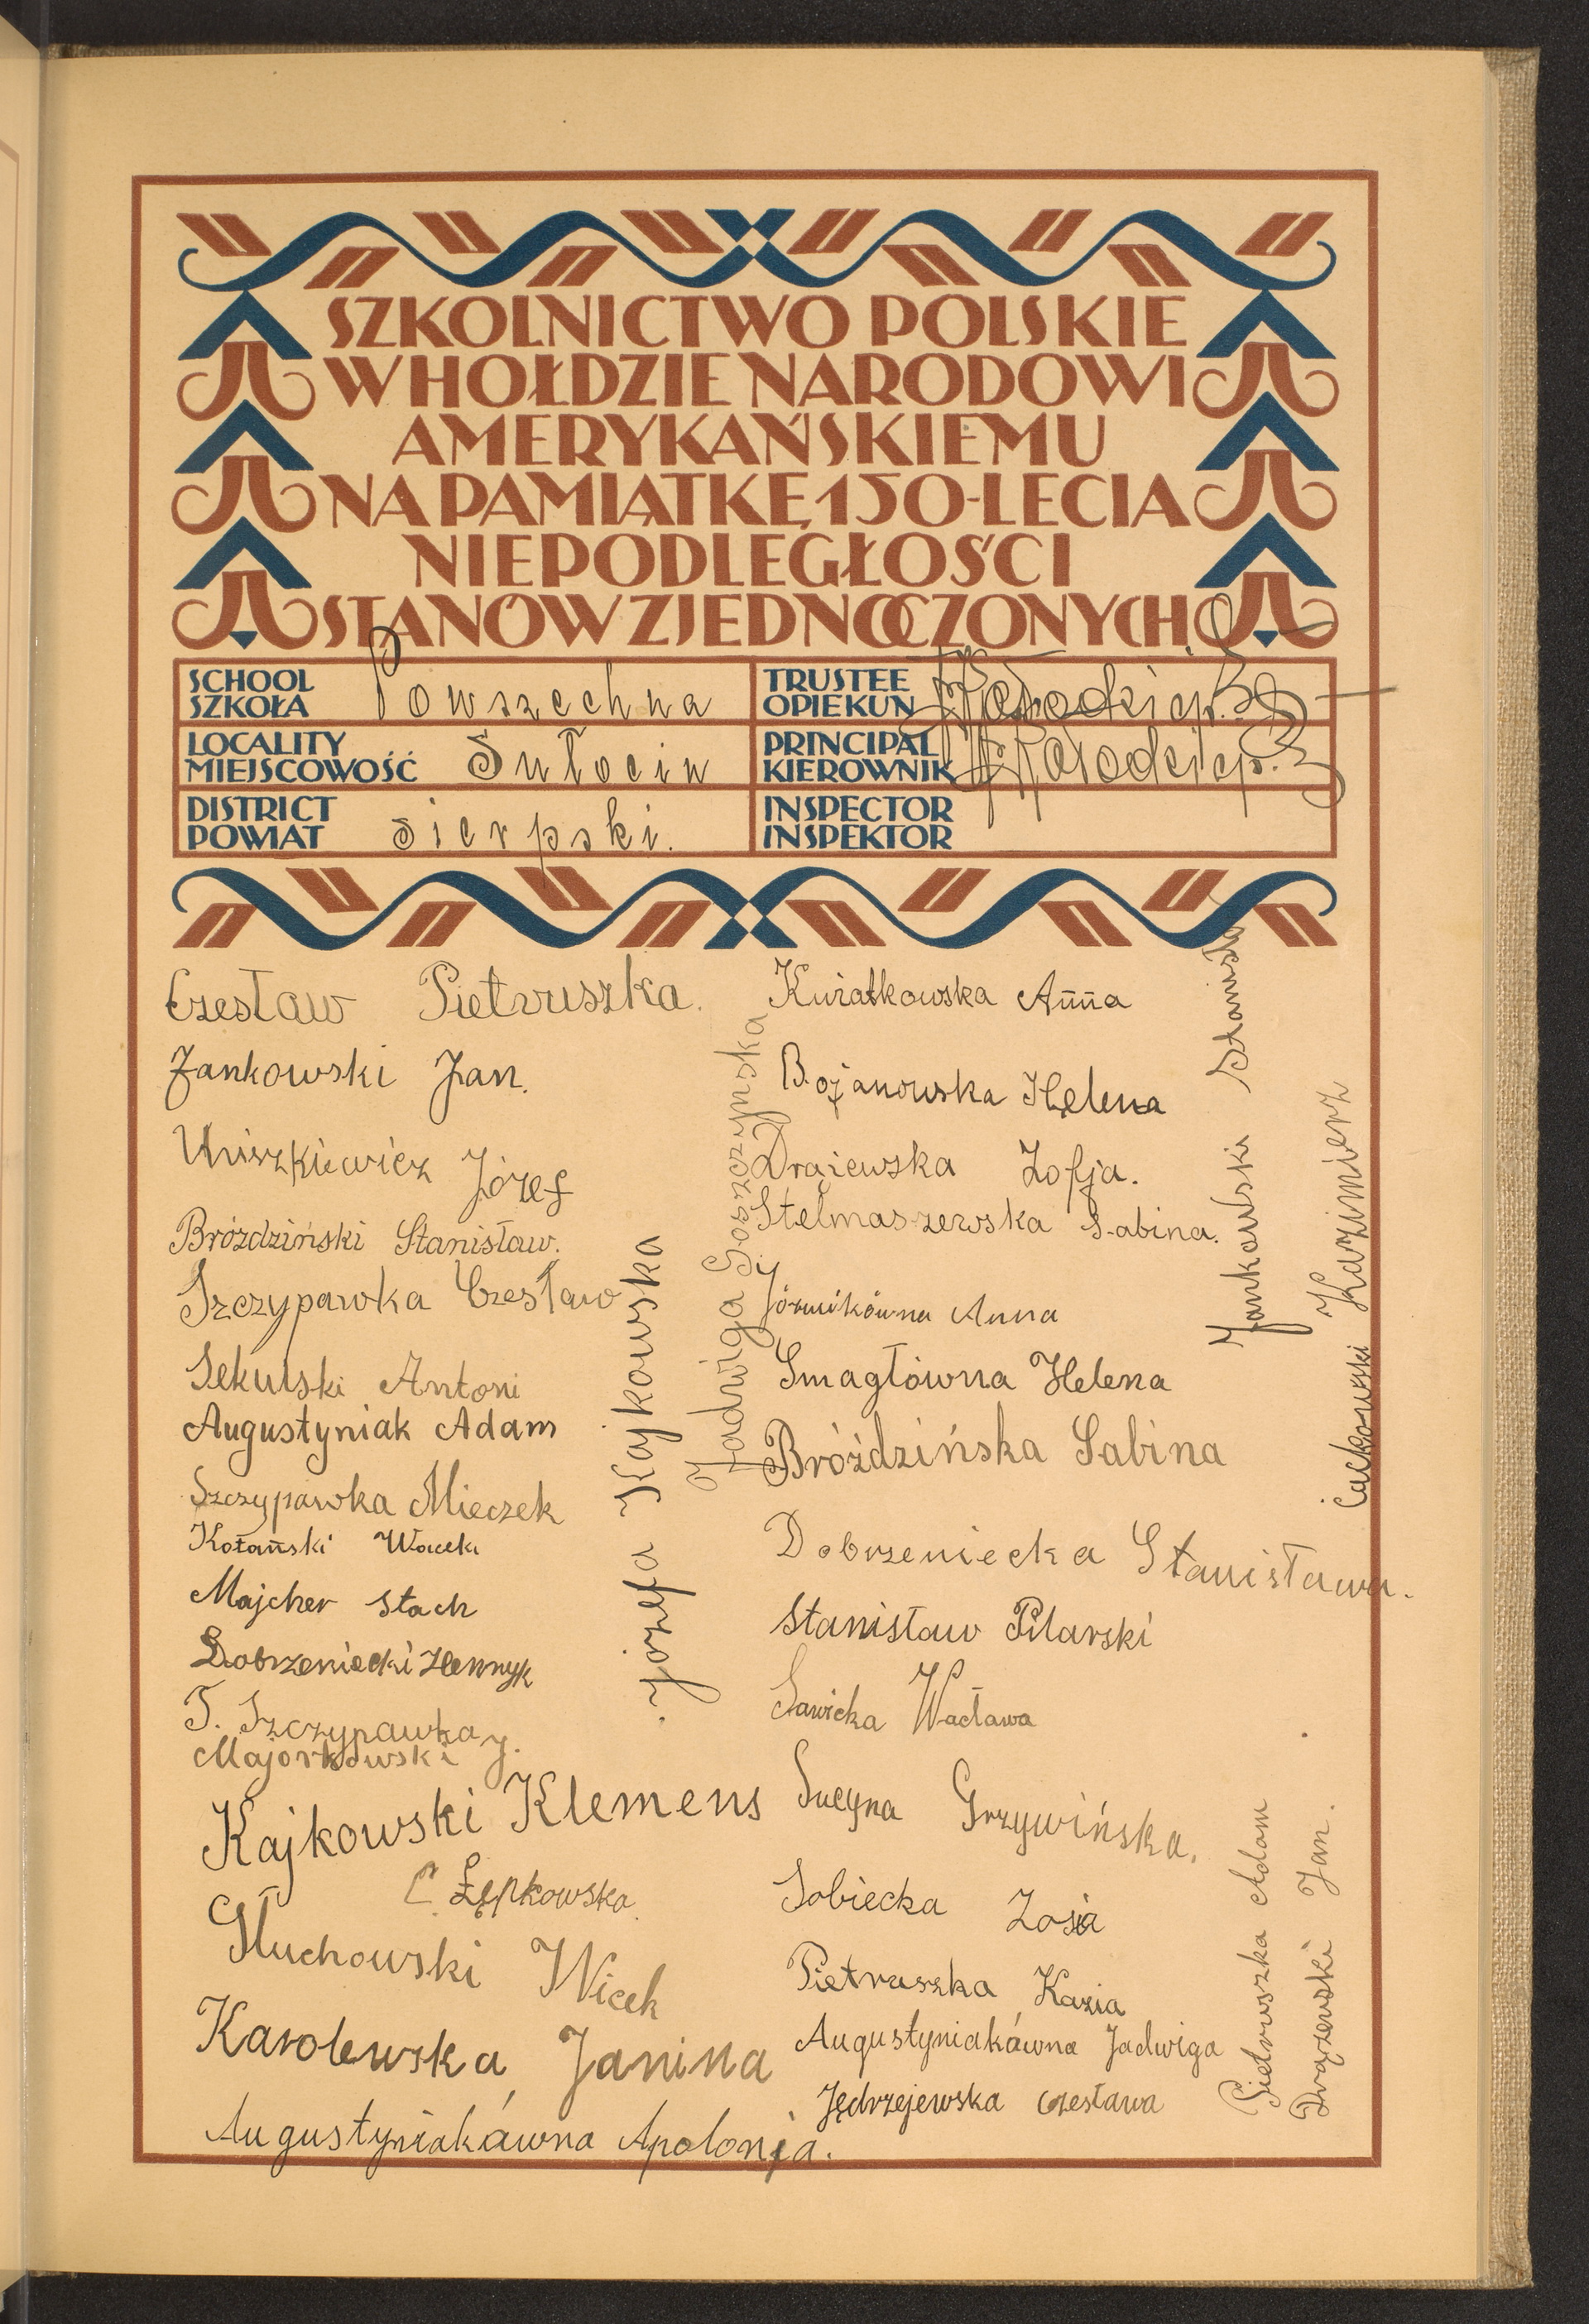 SZKOLNICTWO POLSKIE
W HOŁDZIE NARODOWI
AMERYKAŃSKIEMU
NA PAMIĄTKĘ 150-LECIA
NIEPODLEGŁOŚCI
STANÓW ZJEDNOCZONYCH
SCHOOL
SZKOŁA Powszechna
TRUSTEE
OPIEKUN
LOCALITY
MIEJSCOWOŚĆ Sułocin
PRINCIPAL
KIEROWNIK
DISTRICT
POWIAT sierpski.
INSPECTOR
INSPEKTOR
Czesław Pietruszka.
Jankowski Jan.
Uniszkiewicz Józef
Bróździński Stanisław.
Szczypawka Czesław
Sekulski Antoni
Augustyniak Adam
Szczypawka Mieczek
Kotański Wacek
Majcher Stach
Dobrzeniecki Henryk
T. Szczypawka
Majorkowski J.
Kajkowski Klemens
C. Łępkowska
Głuchowski Wicek
Karolewska Janina
Augustyniakówna Apolonja.
Józefa Kajkowska
Jadwiga Goszczyńska
Kwiatkowska Anna
Bojanowska Helena
Drajewska Zofja.
Stelmaszewska Sabina.
Józwikówna Anna
Smagłówna Helena
Bróździńska Sabina
Dobrzeniecka Stanisława.
Stanisław Pilarski
Sawicka Wacława
Lucyna Grzywińska.
Sobiecka Zosia
Pietruszka Kazia
Augustyniakówna Jadwiga
Jędrzejewska Czesława
Jankowski Stanisław
Kazimierz
Pietruszka Adam
Drązewski Jan.